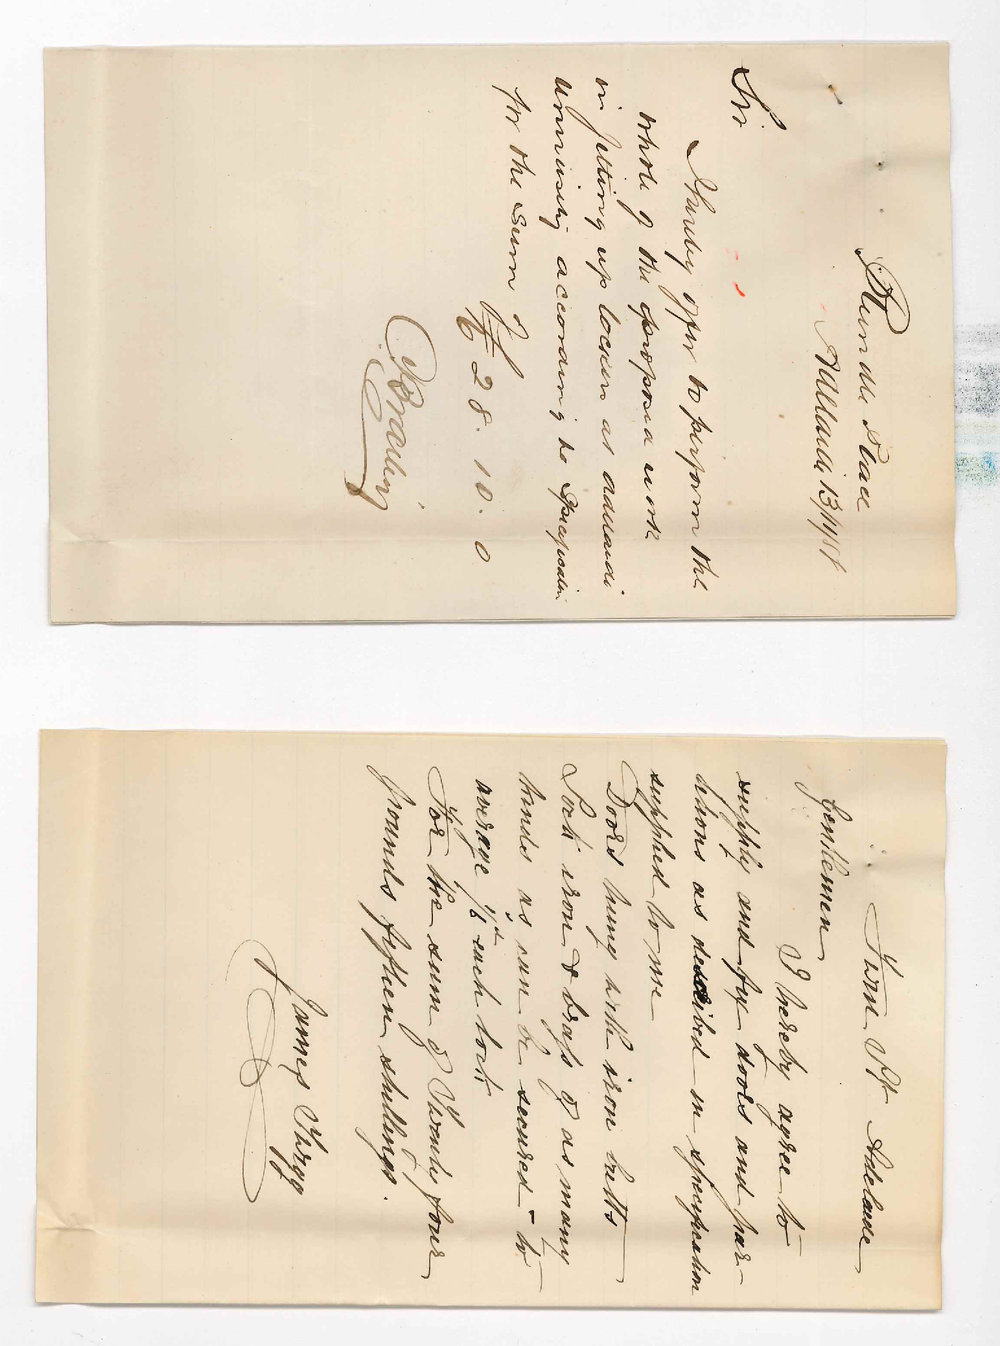 Rundle Place
Adelaide 13/4/
Sir
I hereby offer to perform the
whole of the proposed work
in fitting up lockers at Adelaide
University according to Specification
for the Sum of
£ 28. 10. 0
J Brading
Adelaide
Gentlemen
I hereby agree to
supply and fix doors and par-
titions as described in specification
supplied to me
Doors hung with iron butts
Lock iron & brass of as many
kinds as can be secured to
average 1/6 each lock
For the sum of Twenty four
pounds fifteen shillings.
James